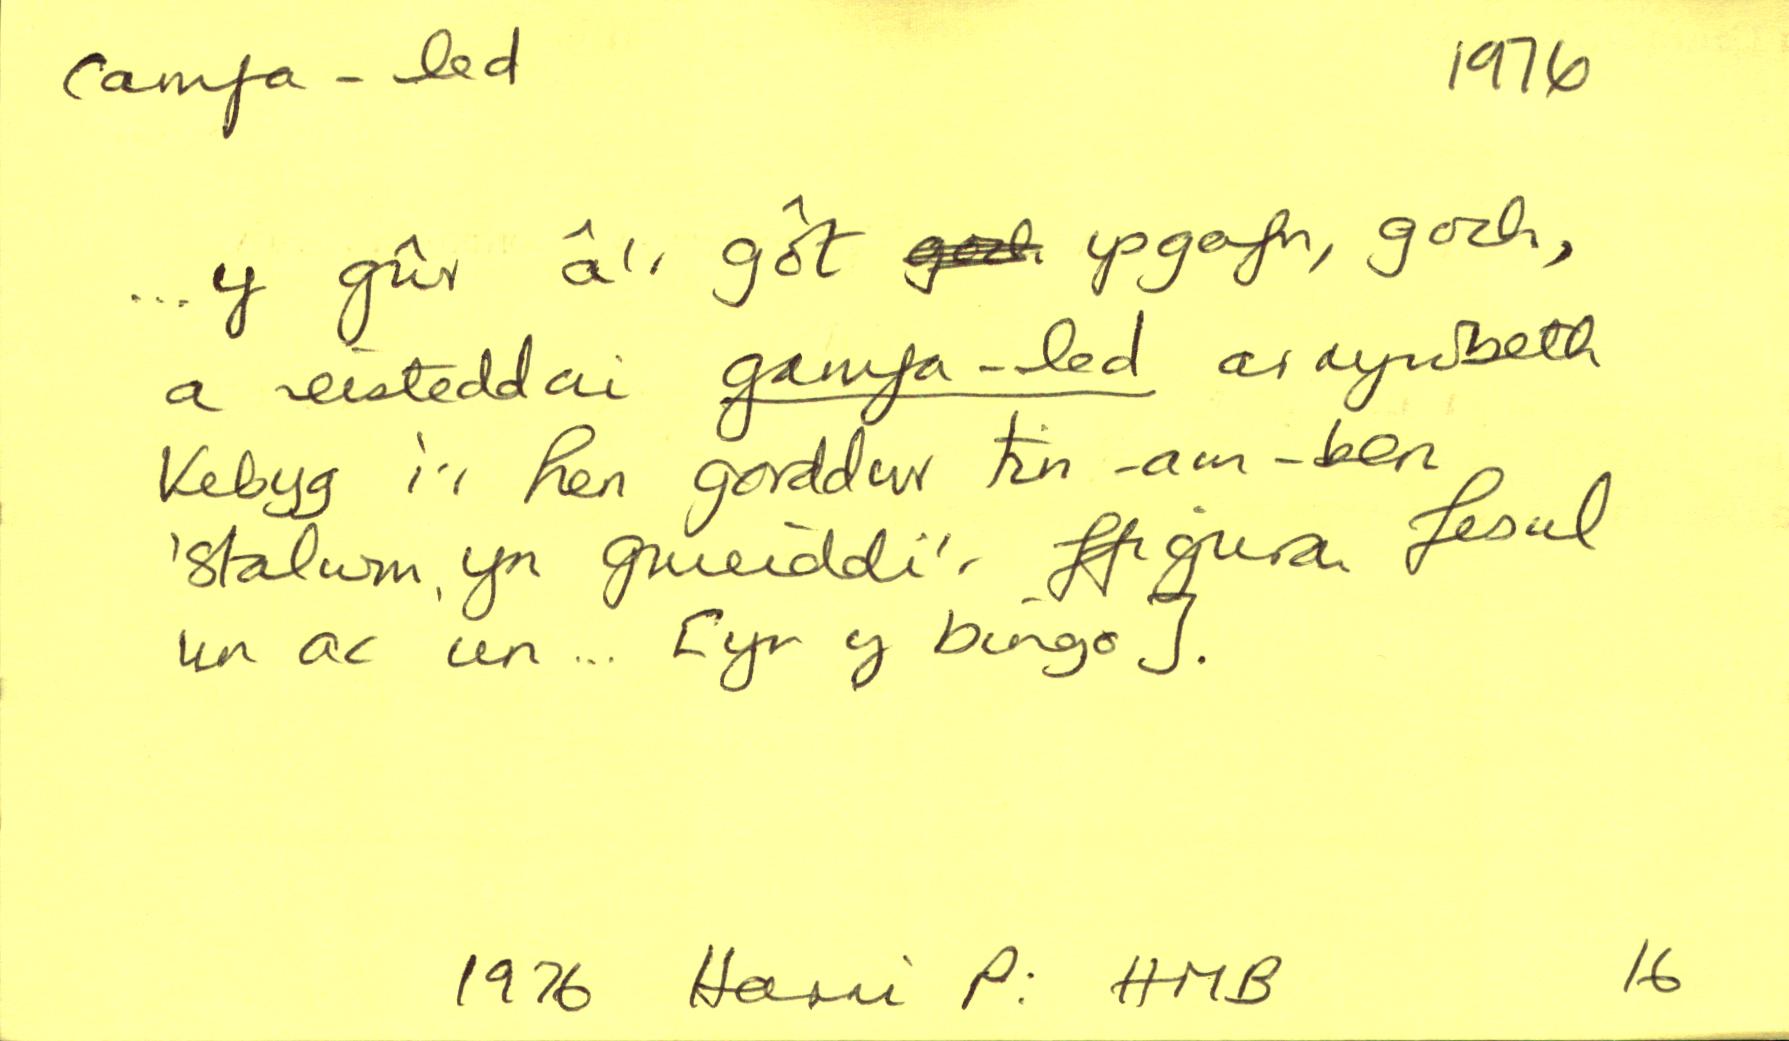 camfa-led 1976
...y gŵr â'r gôt ysgafn, goch,
a eisteddai gamfa-led ar rywbeth
tebyg i'r hen gorddwr tin-am-ben
'stalwm, yn gweiddi'r ffigura fesul
un ac un... [yn y bingo].
1976 Harri P: HMB 16